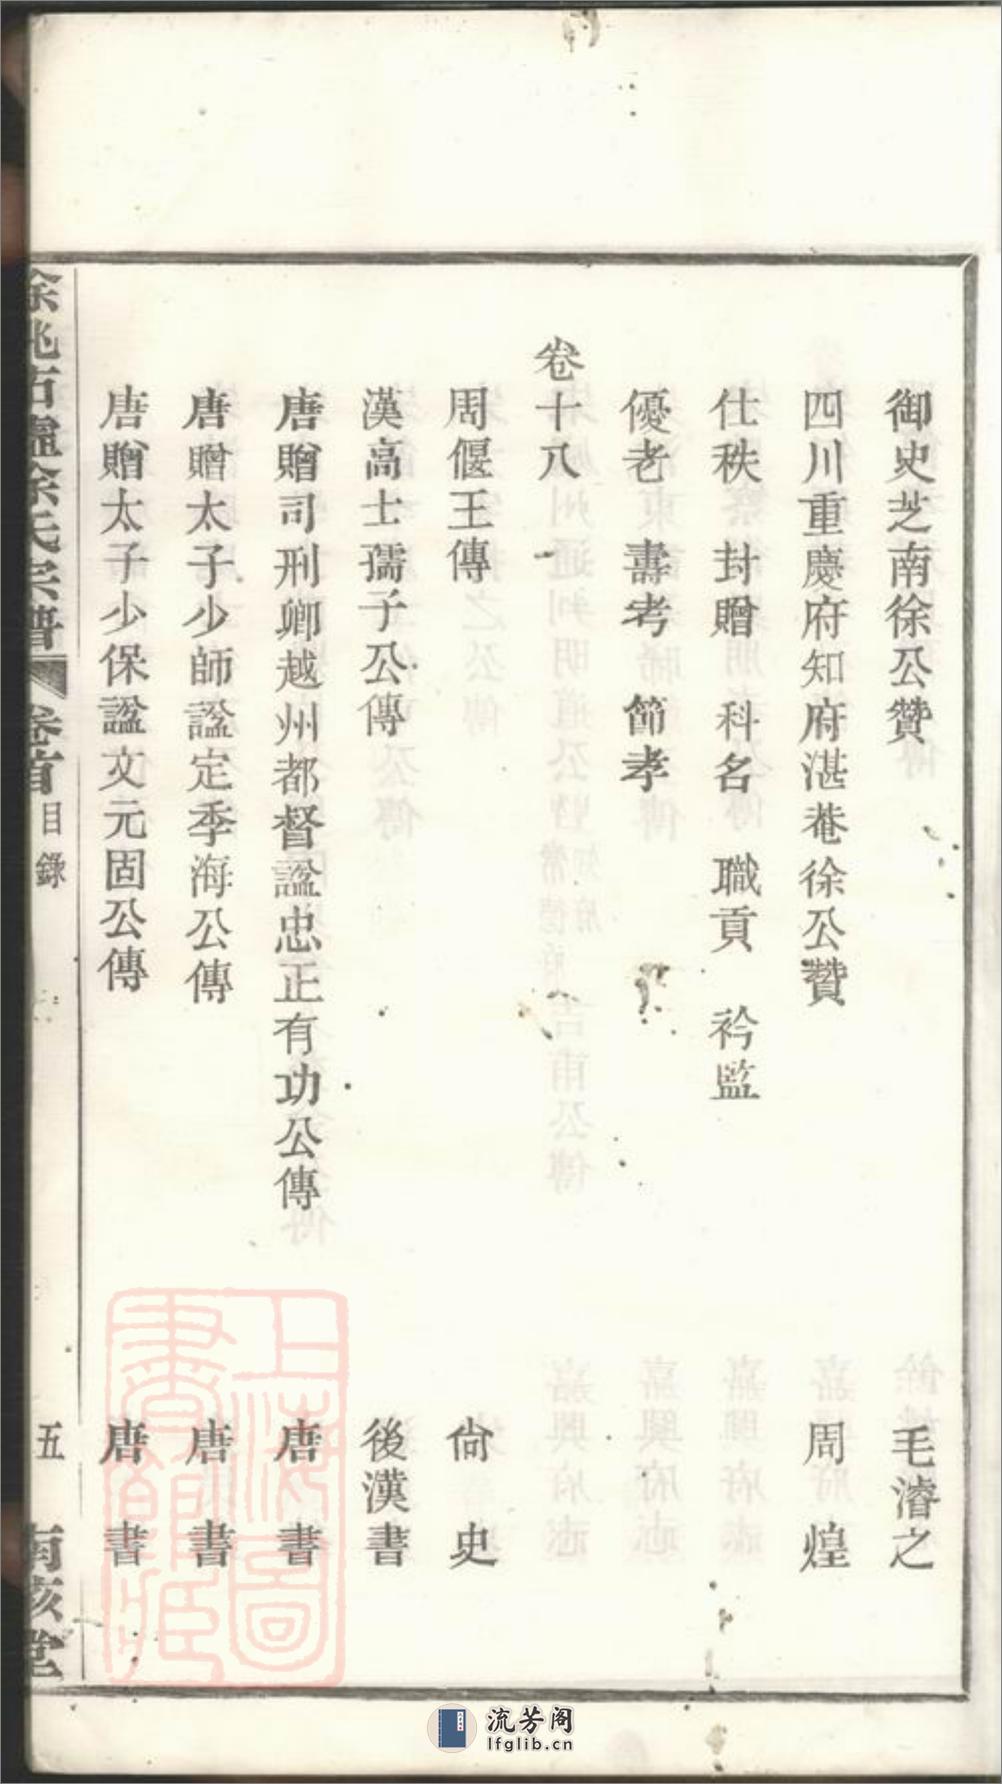 御史芝南徐公贊 毛濬之
四川重慶府知府湛菴徐公贊 周煌
仕秩 封贈 科名 職貢 衿監
優老 壽考 節孝
卷十八
周偃王傳 尙史
漢高士孺子公傳 後漢書
唐贈司刑卿越州都督諡忠正有功公傳 唐書
唐贈太子少師諡定季海公傳 唐書
唐贈太子少保諡文元固公傳 唐書
余姚石㙍余氏宗譜 卷首 目錄 五 南陔堂
上海圖書館藏
流芳阁
lfglib.cn